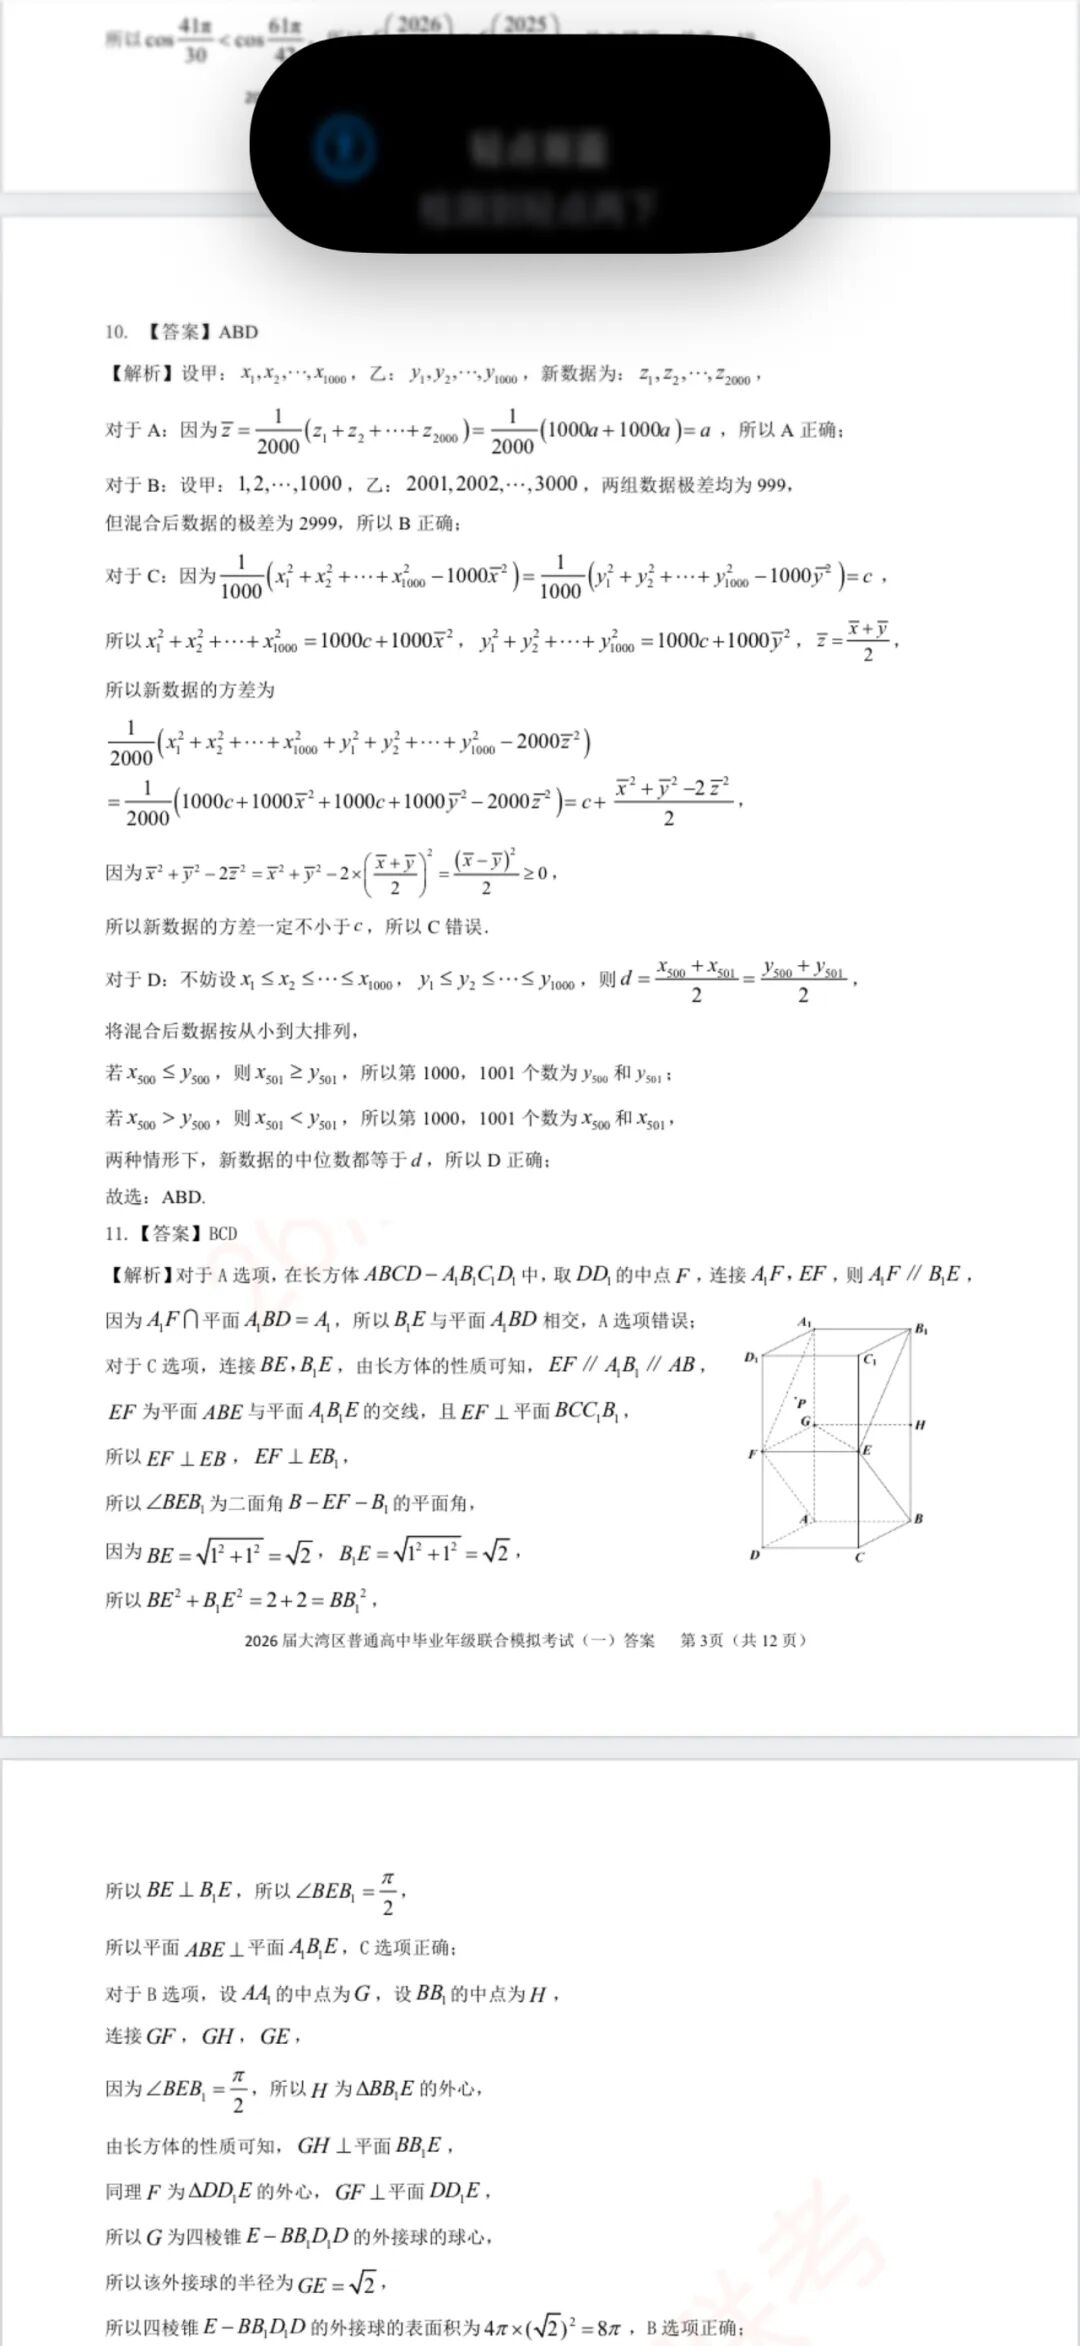 所以cos 41π/30 < cos 61π/4
10. 【答案】ABD
【解析】设甲：x₁,x₂,⋯,x₁₀₀₀，乙：y₁,y₂,⋯,y₁₀₀₀，新数据为：z₁,z₂,⋯,z₂₀₀₀，
对于 A：因为 z̅ = 1/2000 (z₁+z₂+⋯+z₂₀₀₀) = 1/2000 (1000a+1000a) = a，所以 A 正确；
对于 B：设甲：1,2,⋯,1000，乙：2001,2002,⋯,3000，两组数据极差均为 999，
但混合后数据的极差为 2999，所以 B 正确；
对于 C：因为 1/1000 (x₁²+x₂²+⋯+x₁₀₀₀²−1000x̅²) = 1/1000 (y₁²+y₂²+⋯+y₁₀₀₀²−1000y̅²) = c，
所以 x₁²+x₂²+⋯+x₁₀₀₀² = 1000c+1000x̅²，y₁²+y₂²+⋯+y₁₀₀₀² = 1000c+1000y̅²，z̅ = (x̅+y̅)/2，
所以新数据的方差为
1/2000 (x₁²+x₂²+⋯+x₁₀₀₀²+y₁²+y₂²+⋯+y₁₀₀₀²−2000z̅²)
= 1/2000 (1000c+1000x̅²+1000c+1000y̅²−2000z̅²) = c + (x̅²+y̅²−2z̅²)/2，
因为 x̅²+y̅²−2z̅² = x̅²+y̅²−2×((x̅+y̅)/2)² = (x̅−y̅)²/2 ≥ 0，
所以新数据的方差一定不小于 c，所以 C 错误.
对于 D：不妨设 x₁≤x₂≤⋯≤x₁₀₀₀，y₁≤y₂≤⋯≤y₁₀₀₀，则 d = (x₅₀₀+x₅₀₁)/2 = (y₅₀₀+y₅₀₁)/2，
将混合后数据按从小到大排列，
若 x₅₀₀≤y₅₀₀，则 x₅₀₁≥y₅₀₁，所以第 1000，1001 个数为 y₅₀₀ 和 y₅₀₁；
若 x₅₀₀>y₅₀₀，则 x₅₀₁<y₅₀₁，所以第 1000，1001 个数为 x₅₀₀ 和 x₅₀₁，
两种情形下，新数据的中位数都等于 d，所以 D 正确；
故选：ABD.
11.【答案】BCD
【解析】对于 A 选项，在长方体 ABCD−A₁B₁C₁D₁ 中，取 DD₁ 的中点 F，连接 A₁F，EF，则 A₁F // B₁E，
因为 A₁F∩平面 A₁BD = A₁，所以 B₁E 与平面 A₁BD 相交，A 选项错误；
对于 C 选项，连接 BE，B₁E，由长方体的性质可知，EF // A₁B₁ // AB，
EF 为平面 ABE 与平面 A₁B₁E 的交线，且 EF⊥平面 BCC₁B₁，
所以 EF⊥EB，EF⊥EB₁，
所以∠BEB₁ 为二面角 B−EF−B₁ 的平面角，
因为 BE = √(1²+1²) = √2，B₁E = √(1²+1²) = √2，
所以 BE²+B₁E² = 2+2 = BB₁²，
A₁ B₁
D₁ C₁
P
G H
F E
A B
D C
2026 届大湾区普通高中毕业年级联合模拟考试（一）答案 第 3页（共 12 页）
所以 BE⊥B₁E，所以∠BEB₁ = π/2，
所以平面 ABE⊥平面 A₁B₁E，C 选项正确；
对于 B 选项，设 AA₁ 的中点为 G，设 BB₁ 的中点为 H，
连接 GF，GH，GE，
因为∠BEB₁ = π/2，所以 H 为 ΔBB₁E 的外心，
由长方体的性质可知，GH⊥平面 BB₁E，
同理 F 为 ΔDD₁E 的外心，GF⊥平面 DD₁E，
所以 G 为四棱锥 E−BB₁D₁D 的外接球的球心，
所以该外接球的半径为 GE = √2，
所以四棱锥 E−BB₁D₁D 的外接球的表面积为 4π×(√2)² = 8π，B 选项正确；